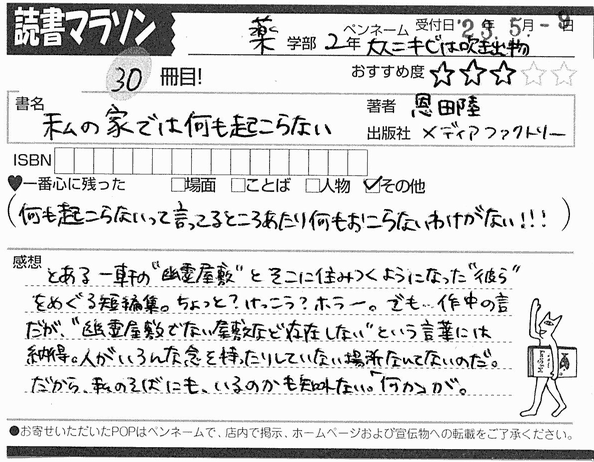 読書マラソン
薬 学部 2年 ペンネーム 大人ニキビは吹き出物 受付日 '23.5.-9 年 月 日
30 冊目!
おすすめ度 ★★★☆☆
書名 私の家では何も起こらない
著者 恩田陸
出版社 メディアファクトリー
ISBN
♥一番心に残った □場面 □ことば □人物 ☑その他
(何も起こらないって言ってるところあたり何もおこらないわけがない!!!)
感想
とある一軒の"幽霊屋敷"とそこに住みつくようになった"彼ら"
をめぐる短編集。ちょっと?けっこう?ホラー。でも…作中の言
だが、"幽霊屋敷でない屋敷など存在しない"という言葉には
納得。人がいろんな念を持ったりしていない場所なんてないのだ。
だから、私のそばにも、いるのかも知れない。何かが。
●お寄せいただいたPOPはペンネームで、店内で掲示、ホームページおよび宣伝物への転載をご了承ください。